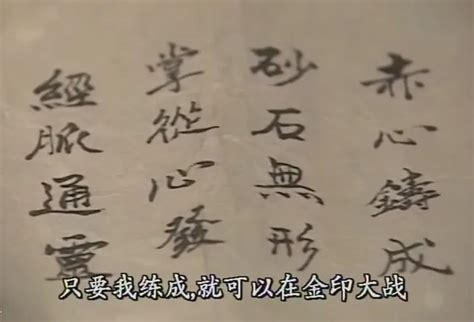 赤心鑄成
砂石無形
掌從心發
經脈通靈
只要我练成,就可以在金印大战